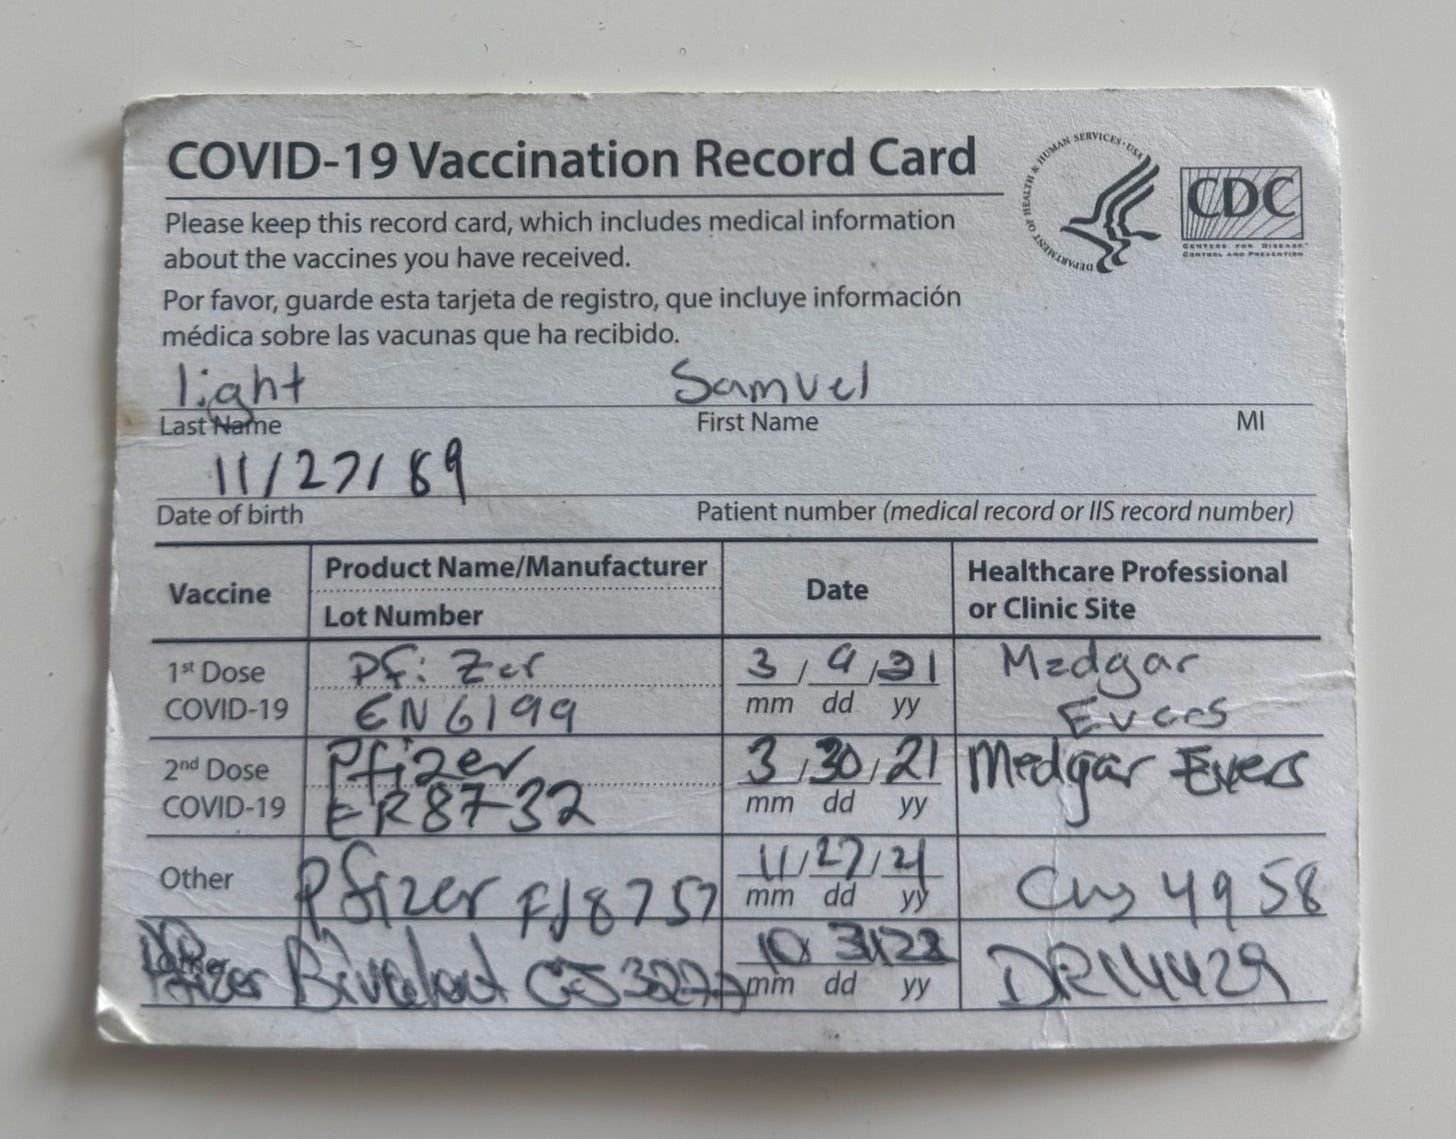 COVID-19 Vaccination Record Card
DEPARTMENT OF HEALTH & HUMAN SERVICES · USA
CDC
CENTERS FOR DISEASE
CONTROL AND PREVENTION
Please keep this record card, which includes medical information
about the vaccines you have received.
Por favor, guarde esta tarjeta de registro, que incluye información
médica sobre las vacunas que ha recibido.
light Samuel
Last Name First Name MI
11/27/89
Date of birth Patient number (medical record or IIS record number)
Vaccine
Product Name/Manufacturer
Lot Number
Date
Healthcare Professional
or Clinic Site
1st Dose
COVID-19
Pfizer
EN6199
3/9/21
mm dd yy
Medgar
Evers
2nd Dose
COVID-19
Pfizer
ER8732
3/30/21
mm dd yy
Medgar Evers
Other
Pfizer FJ8757
11/27/21
mm dd yy
CVS 4958
Pfizer Bivalent
10 31 22
mm dd yy